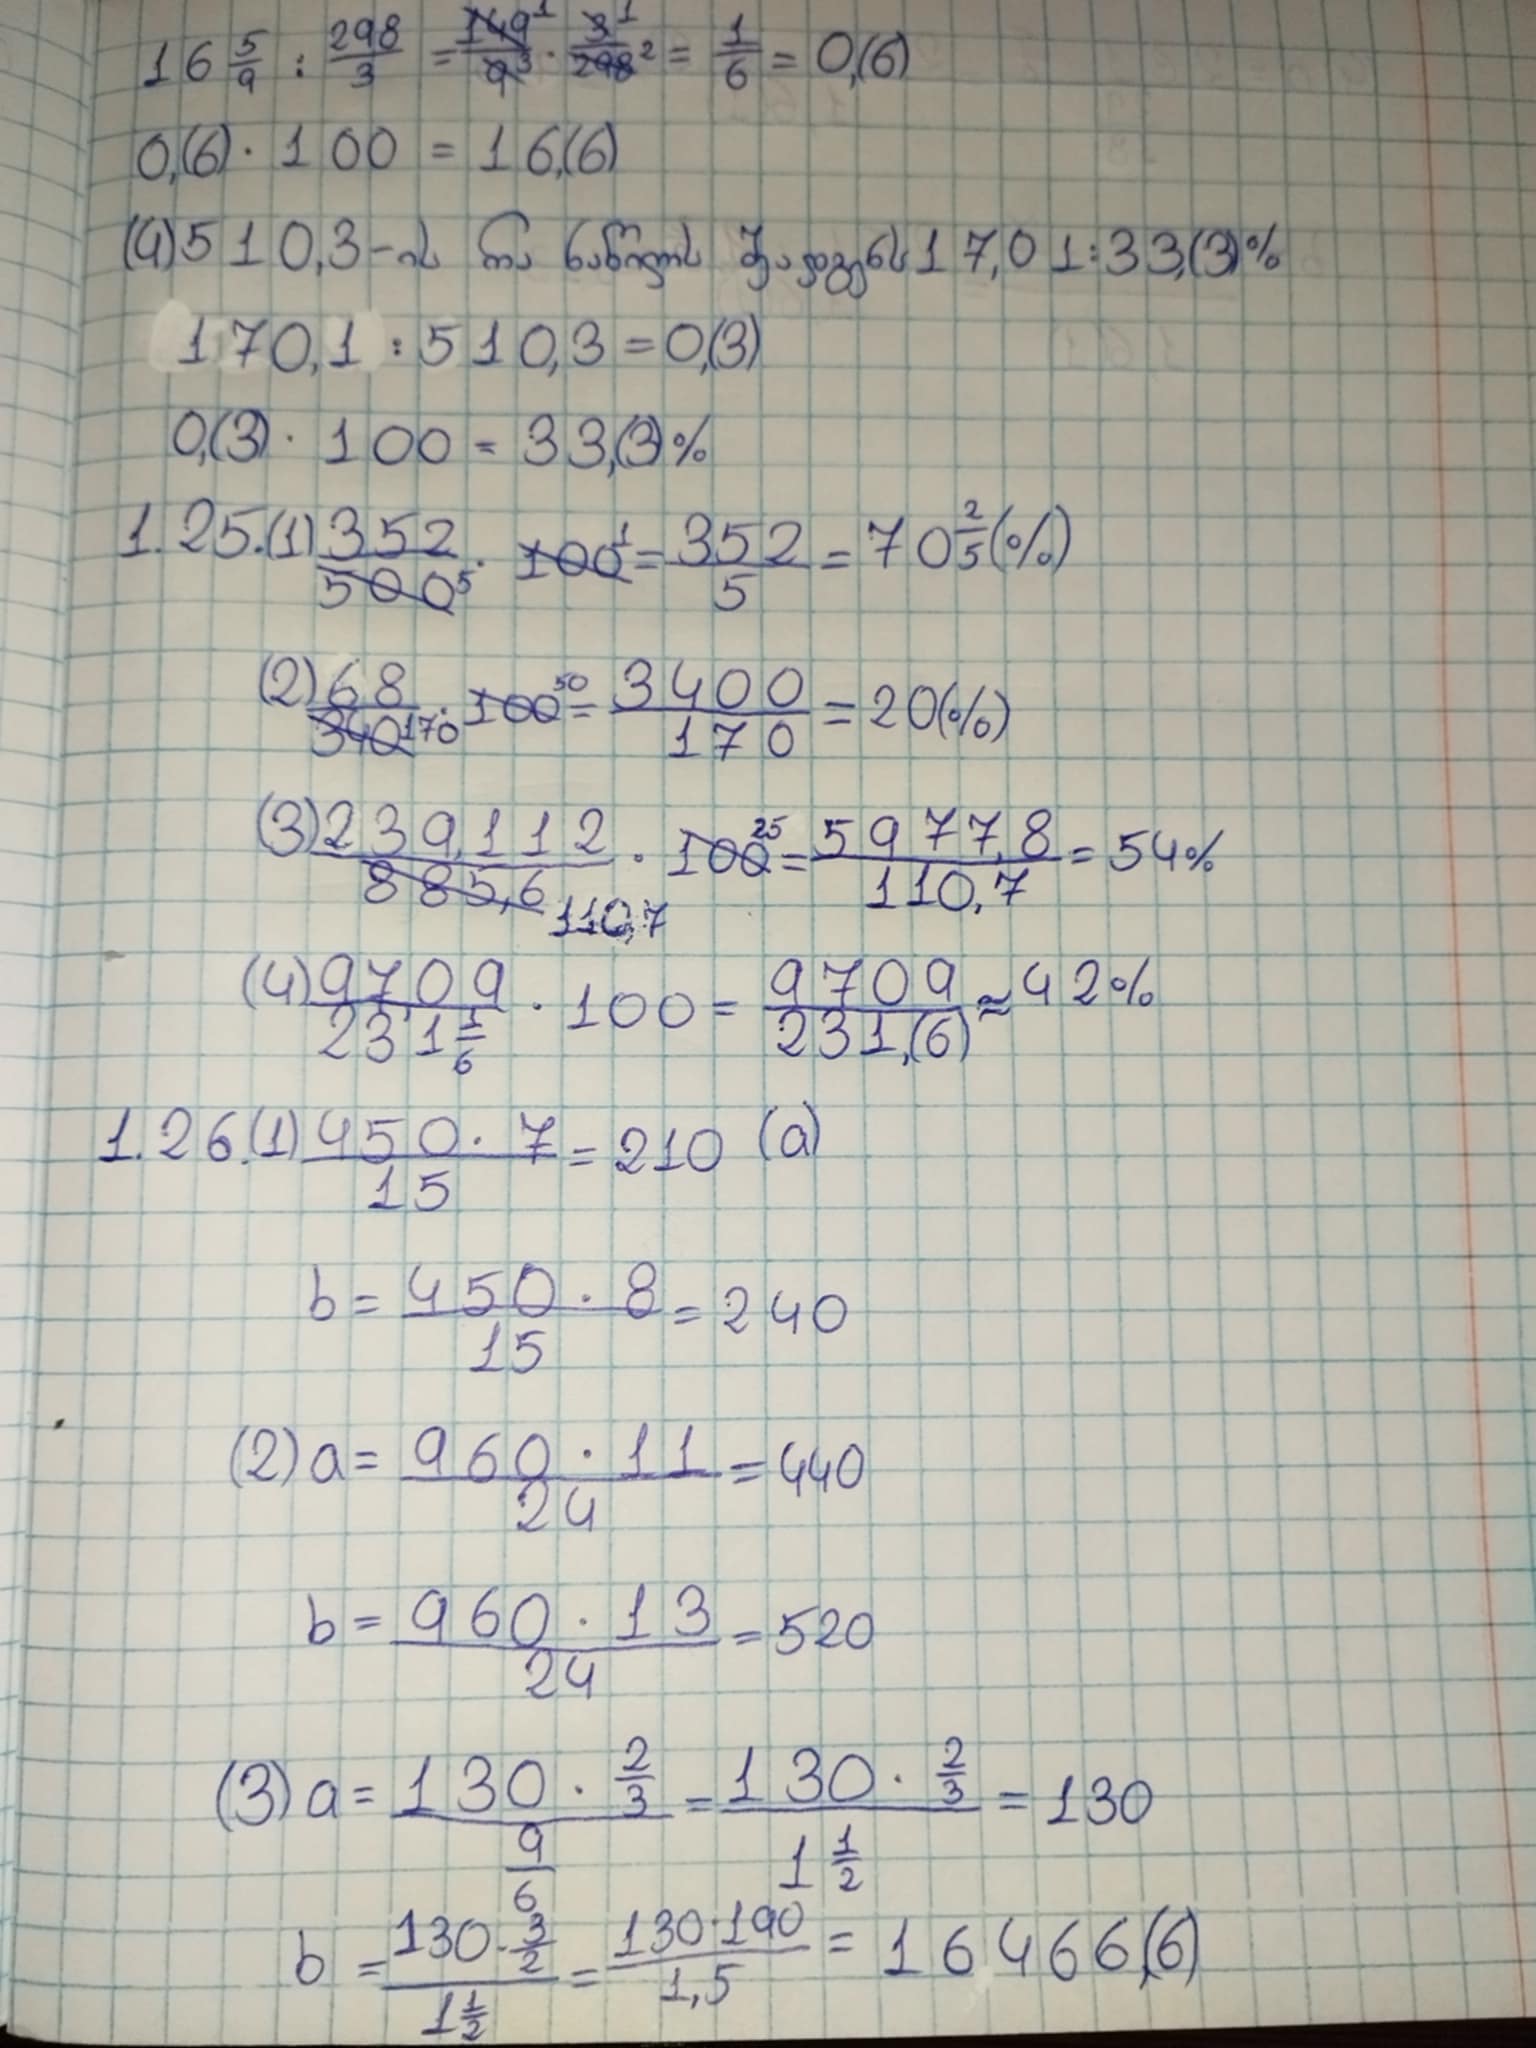 16 5/9 : 298/3 = 149¹/9³ · 3¹/298² = 1/6 = 0,(6)
0,(6) · 100 = 16,(6)
(4) 510,3-ის რა ნაწილს შეადგენს 17,01 : 33,(3)%
170,1 : 510,3 = 0,(3)
0,(3) · 100 = 33,(3)%
1.25.(1) 352/500⁵ · 100¹ = 352/5 = 70 2/5 (%)
(2) 68/340 170 · 100⁵⁰ = 3400/170 = 20(%)
(3) 239,112/885,6 110,7 · 100²⁵ = 5977,8/110,7 = 54%
(4) 9709/231 1/6 · 100 = 9709/231,(6) ≈ 42%
1.26.(1) 450 · 7/15 = 210 (a)
b = 450 · 8/15 = 240
(2) a = 960 · 11/24 = 440
b = 960 · 13/24 = 520
(3) a = 130 · 2/3 / 9/6 = 130 · 2/3 / 1 1/2 = 130
b = 130 · 3/2 / 1 1/2 = 130 · 190/1,5 = 16466,(6)